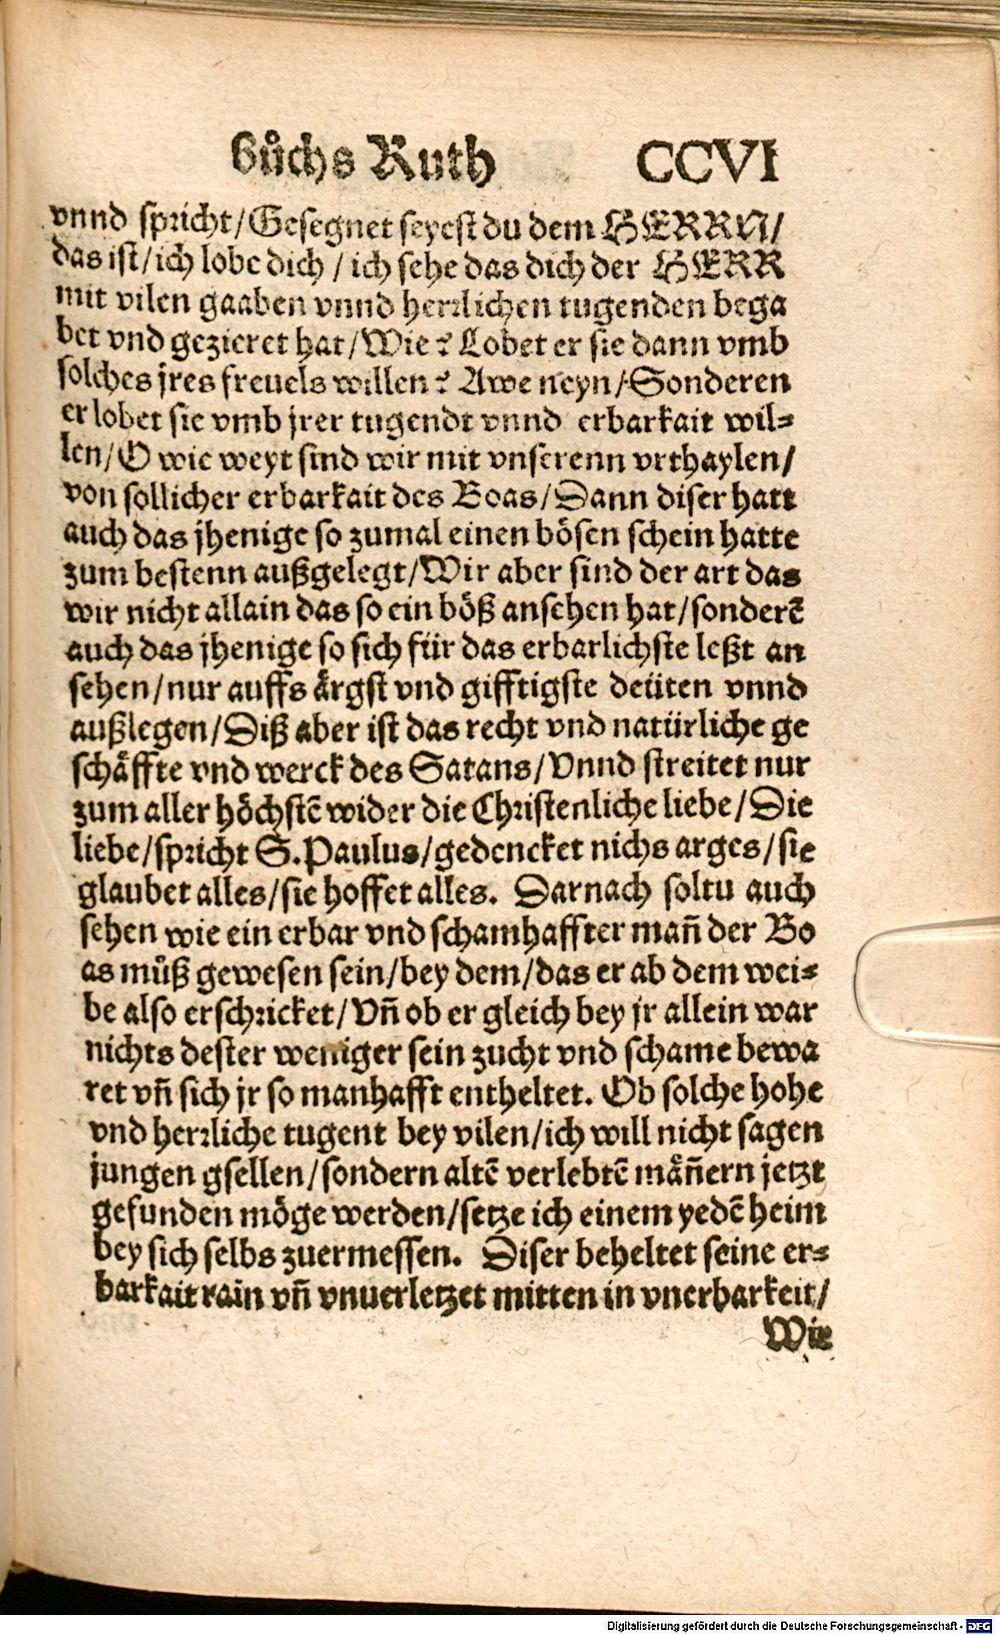 bůchs Ruth CCVI
vnnd spricht/Gesegnet seyest du dem HERRN/
das ist/ich lobe dich / ich sehe das dich der HERR
mit vilen gaaben vnnd herrlichen tugenden bega
bet vnd gezieret hat/Wie? Lobet er sie dann vmb
solches jres freuels willen? Awe neyn/Sonderen
er lobet sie vmb jrer tugendt vnnd erbarkait wil⸗
len/O wie weyt sind wir mit vnserenn vrthaylen/
von sollicher erbarkait des Boas/Dann diser hatt
auch das jhenige so zumal einen bösen schein hatte
zum bestenn außgelegt/Wir aber sind der art das
wir nicht allain das so ein böß ansehen hat/sonderē
auch das jhenige so sich für das erbarlichste leßt an
sehen/nur auffs ärgst vnd gifftigste deüten vnnd
außlegen/Diß aber ist das recht vnd natürliche ge
schäffte vnd werck des Satans/Vnnd streitet nur
zum aller höchstē wider die Christenliche liebe/Die
liebe/spricht S.Paulus/gedencket nichs arges/sie
glaubet alles/sie hoffet alles. Darnach soltu auch
sehen wie ein erbar vnd schamhaffter man̄ der Bo
as můß gewesen sein/bey dem/das er ab dem wei⸗
be also erschricket/Vn̄ ob er gleich bey jr allein war
nichts dester weniger sein zucht vnd schame bewa
ret vn̄ sich jr so manhafft entheltet. Ob solche hohe
vnd herrliche tugent bey vilen/ich will nicht sagen
jungen gsellen/sondern altē verlebtē män̄ern jetzt
gefunden möge werden/setze ich einem yedē heim
bey sich selbs zuermessen. Diser beheltet seine er⸗
barkait rain vn̄ vnuerletzet mitten in vnerbarkeit/
Wie
Digitalisierung gefördert durch die Deutsche Forschungsgemeinschaft - DFG